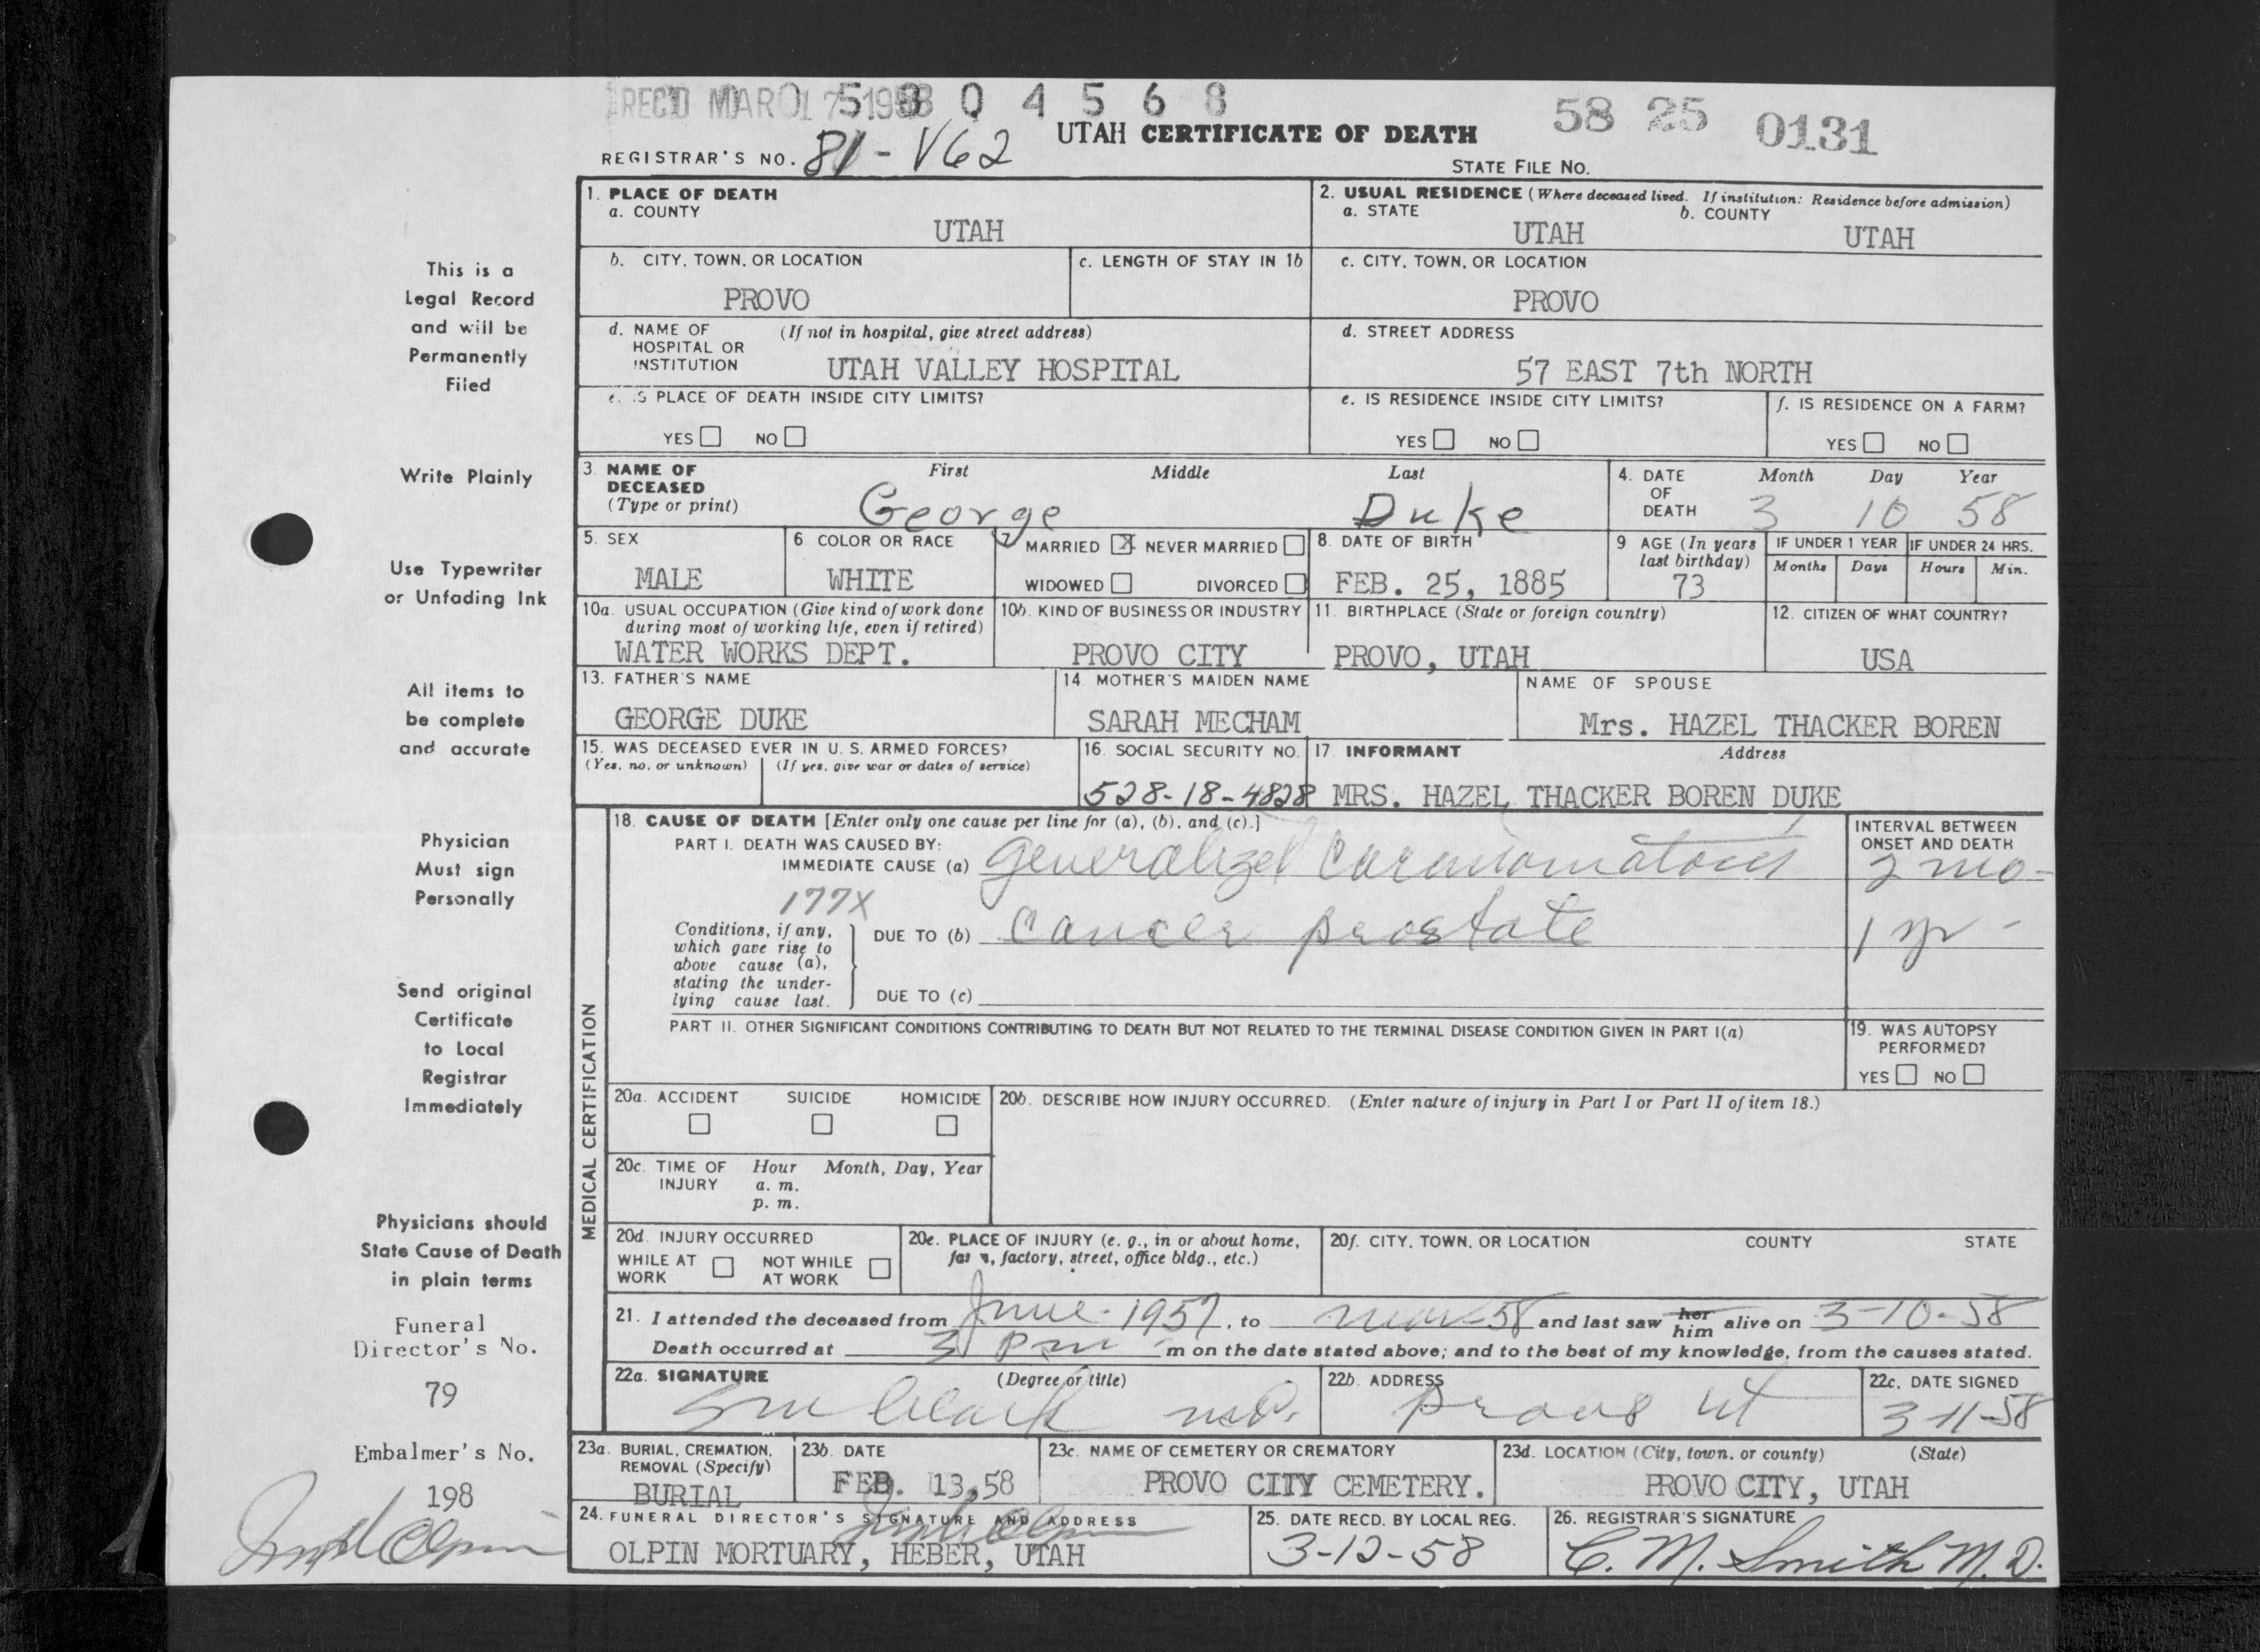 REC'D MAR 17 1958 0 4 5 6 8
58 25 0131
UTAH CERTIFICATE OF DEATH
REGISTRAR'S NO. 81-V62
STATE FILE NO.
1. PLACE OF DEATH
a. COUNTY
UTAH
2. USUAL RESIDENCE (Where deceased lived. If institution: Residence before admission)
a. STATE b. COUNTY
UTAH UTAH
b. CITY, TOWN, OR LOCATION
PROVO
c. LENGTH OF STAY IN 1b
c. CITY, TOWN, OR LOCATION
PROVO
d. NAME OF (If not in hospital, give street address)
HOSPITAL OR
INSTITUTION UTAH VALLEY HOSPITAL
d. STREET ADDRESS
57 EAST 7th NORTH
e. IS PLACE OF DEATH INSIDE CITY LIMITS?
YES NO
e. IS RESIDENCE INSIDE CITY LIMITS?
YES NO
f. IS RESIDENCE ON A FARM?
YES NO
3. NAME OF First Middle Last
DECEASED
(Type or print) George Duke
4. DATE Month Day Year
OF
DEATH 3 10 58
5. SEX
MALE
6 COLOR OR RACE
WHITE
7 MARRIED X NEVER MARRIED
WIDOWED DIVORCED
8. DATE OF BIRTH
FEB. 25, 1885
9 AGE (In years
last birthday)
73
IF UNDER 1 YEAR IF UNDER 24 HRS.
Months Days Hours Min.
10a. USUAL OCCUPATION (Give kind of work done
during most of working life, even if retired)
WATER WORKS DEPT.
10b. KIND OF BUSINESS OR INDUSTRY
PROVO CITY
11. BIRTHPLACE (State or foreign country)
PROVO, UTAH
12. CITIZEN OF WHAT COUNTRY?
USA
13. FATHER'S NAME
GEORGE DUKE
14. MOTHER'S MAIDEN NAME
SARAH MECHAM
NAME OF SPOUSE
Mrs. HAZEL THACKER BOREN
15. WAS DECEASED EVER IN U. S. ARMED FORCES?
(Yes, no, or unknown) (If yes, give war or dates of service)
16. SOCIAL SECURITY NO.
528-18-4828
17. INFORMANT Address
MRS. HAZEL THACKER BOREN DUKE
MEDICAL CERTIFICATION
18. CAUSE OF DEATH [Enter only one cause per line for (a), (b), and (c).]
PART I. DEATH WAS CAUSED BY:
IMMEDIATE CAUSE (a) generalized carcinomatosis
177X
Conditions, if any,
which gave rise to
above cause (a),
stating the under-
lying cause last.
DUE TO (b) cancer prostate
DUE TO (c)
INTERVAL BETWEEN
ONSET AND DEATH
2 mo-
1 yr-
PART II. OTHER SIGNIFICANT CONDITIONS CONTRIBUTING TO DEATH BUT NOT RELATED TO THE TERMINAL DISEASE CONDITION GIVEN IN PART I(a)
19. WAS AUTOPSY
PERFORMED?
YES NO
20a. ACCIDENT SUICIDE HOMICIDE
20b. DESCRIBE HOW INJURY OCCURRED. (Enter nature of injury in Part I or Part II of item 18.)
20c. TIME OF Hour Month, Day, Year
INJURY a. m.
p. m.
20d. INJURY OCCURRED
WHILE AT NOT WHILE
WORK AT WORK
20e. PLACE OF INJURY (e. g., in or about home,
farm, factory, street, office bldg., etc.)
20f. CITY, TOWN, OR LOCATION COUNTY STATE
21. I attended the deceased from June-1957, to mar-58 and last saw her him alive on 3-10-58
Death occurred at 3 pm m on the date stated above; and to the best of my knowledge, from the causes stated.
22a. SIGNATURE (Degree or title)
Clark M.D.
22b. ADDRESS
Provo Ut
22c. DATE SIGNED
3-11-58
23a. BURIAL, CREMATION,
REMOVAL (Specify)
BURIAL
23b. DATE
FEB. 13,58
23c. NAME OF CEMETERY OR CREMATORY
PROVO CITY CEMETERY.
23d. LOCATION (City, town, or county) (State)
PROVO CITY, UTAH
24. FUNERAL DIRECTOR'S SIGNATURE AND ADDRESS
OLPIN MORTUARY, HEBER, UTAH
25. DATE RECD. BY LOCAL REG.
3-12-58
26. REGISTRAR'S SIGNATURE
C. M. Smith M.D.
This is a
Legal Record
and will be
Permanently
Filed
Write Plainly
Use Typewriter
or Unfading Ink
All items to
be complete
and accurate
Physician
Must sign
Personally
Send original
Certificate
to Local
Registrar
Immediately
Physicians should
State Cause of Death
in plain terms
Funeral
Director's No.
79
Embalmer's No.
198
Olpin